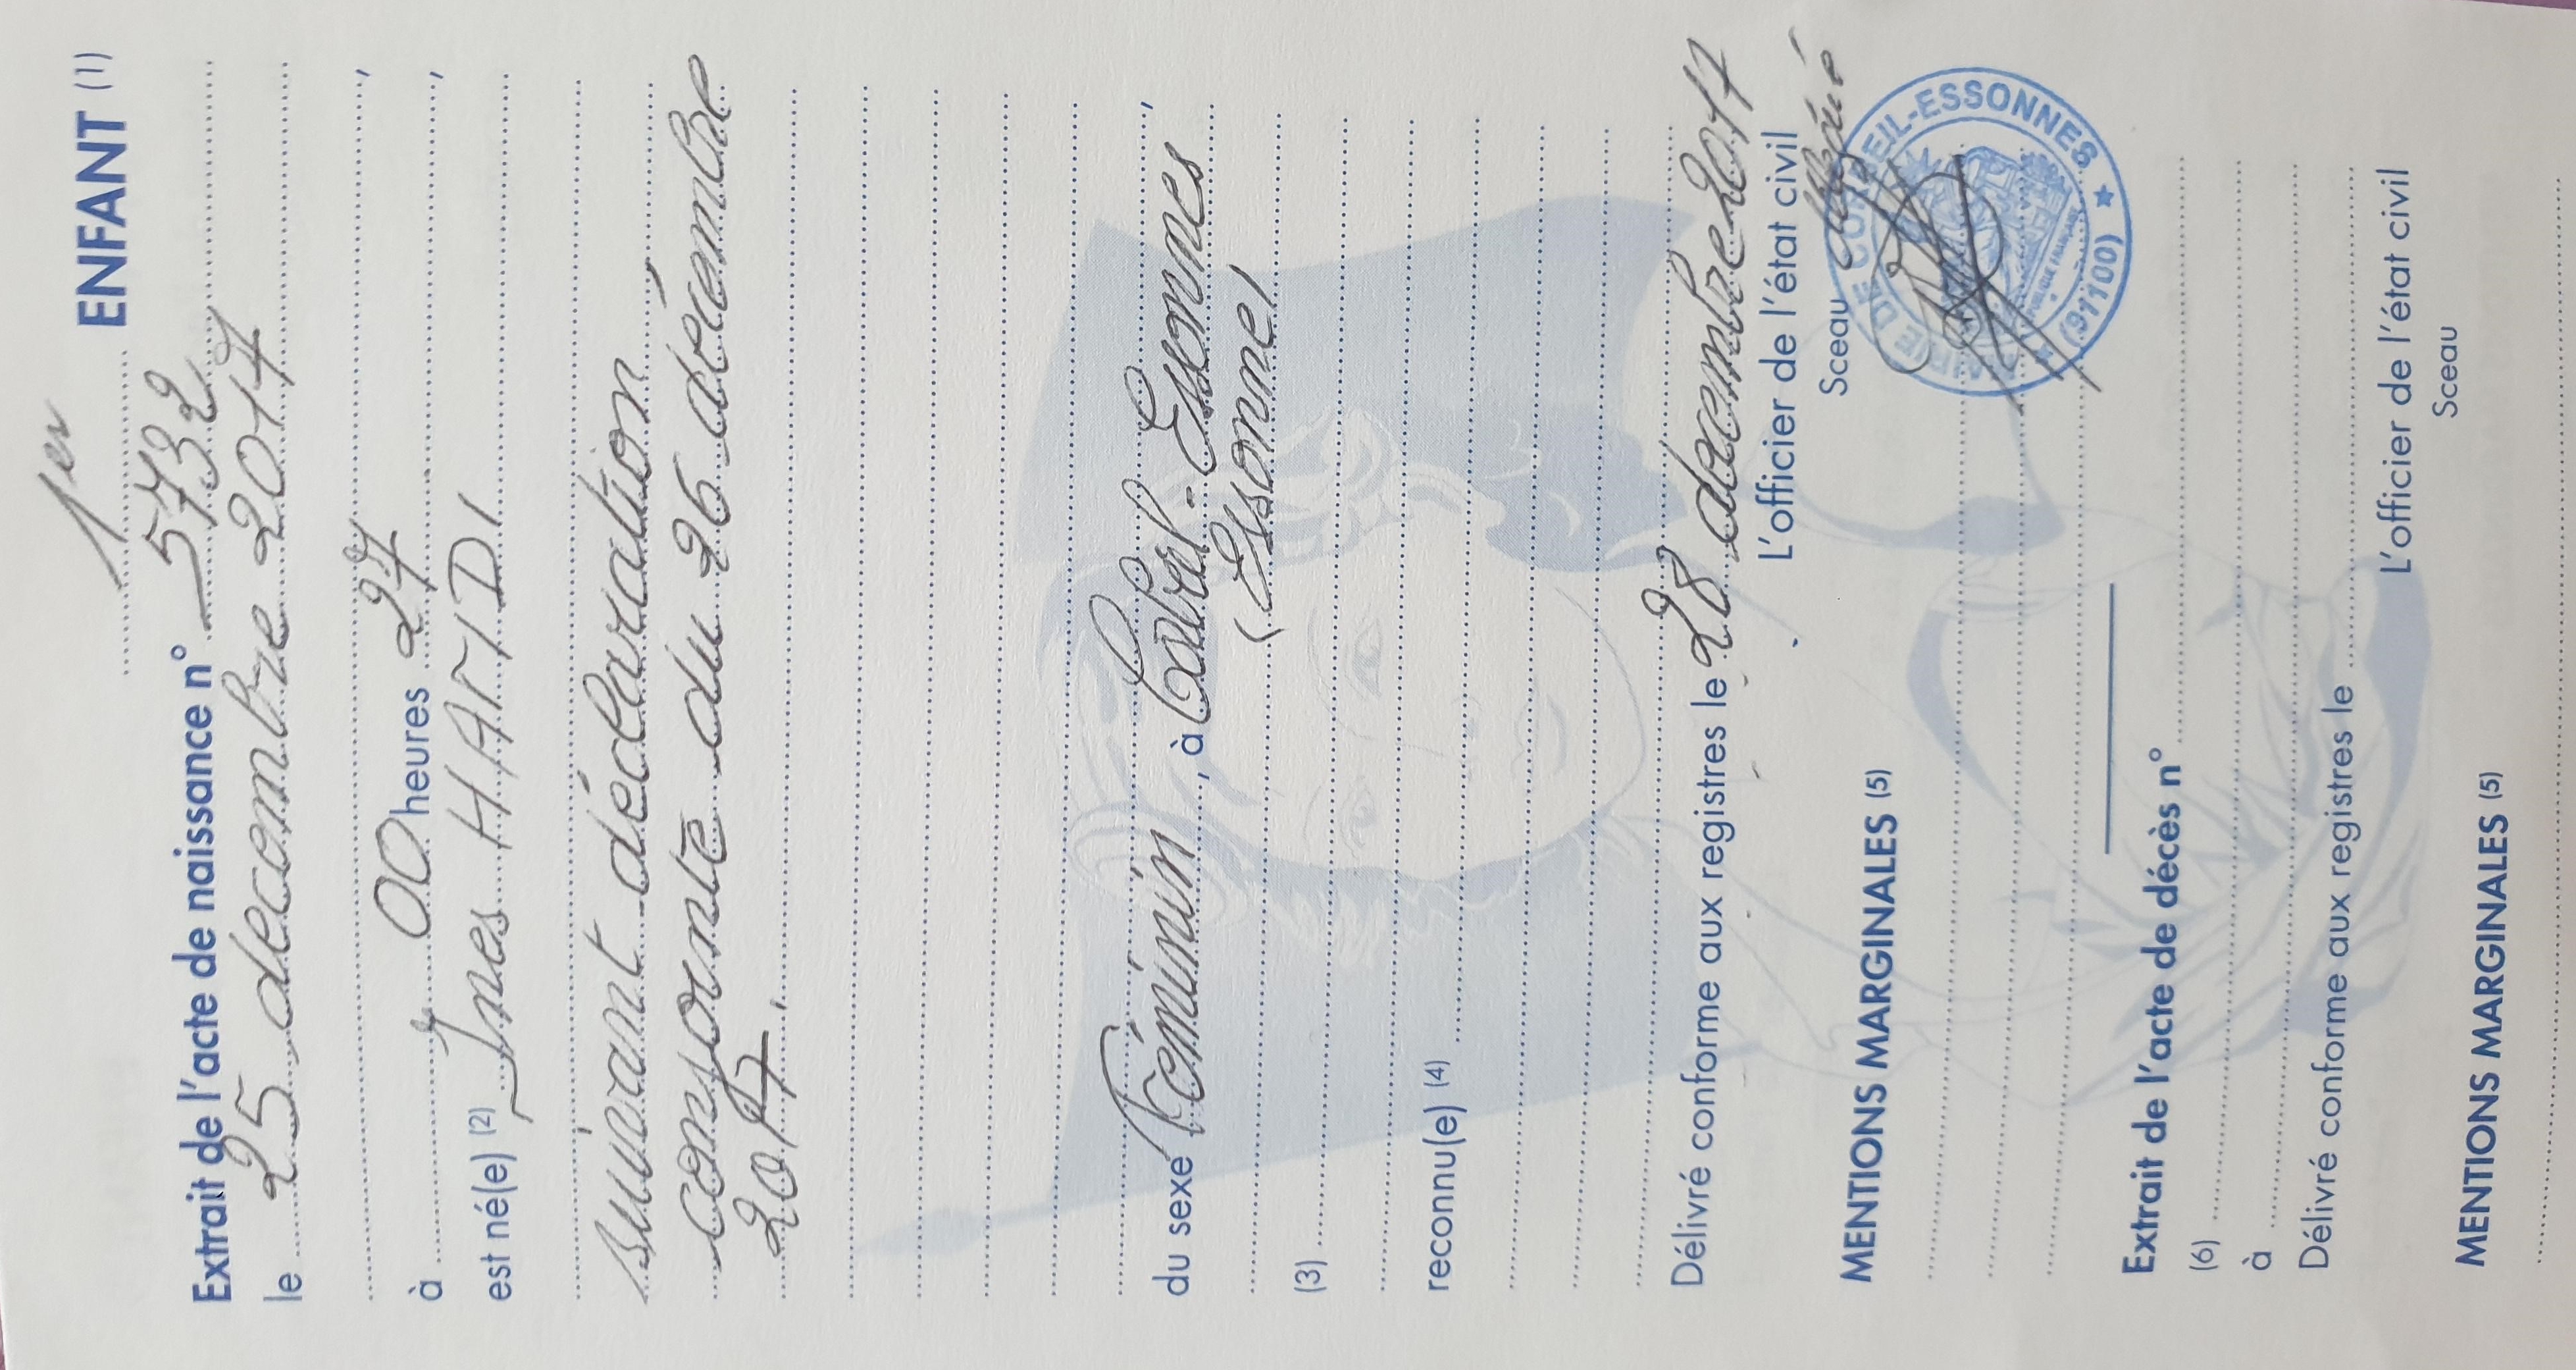 1er ENFANT (1)
Extrait de l'acte de naissance n° 5732
le 25 decembre 2017
à 00 heures 27
est né(e) (2) Ines HAMDI
suivant déclaration
conjointe du 26 décembre
2017.
du sexe Féminin, à Corbeil-Essonnes
(Essonne)
(3)
reconnu(e) (4)
Délivré conforme aux registres le 28 decembre 2017
L'officier de l'état civil
Sceau
MAIRIE DE CORBEIL-ESSONNES
(91100)
MENTIONS MARGINALES (5)
Extrait de l'acte de décès n°
(6)
à
Délivré conforme aux registres le
L'officier de l'état civil
Sceau
MENTIONS MARGINALES (5)